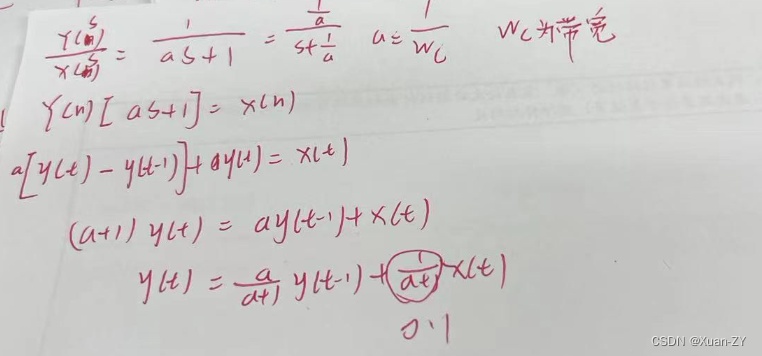 Y(s)/X(s) = 1/(as+1) = (1/a)/(s+1/a) a = 1/Wc Wc为带宽
Y(n)[as+1] = X(n)
a[y(t)-y(t-1)]+y(t) = x(t)
(a+1) y(t) = ay(t-1)+x(t)
y(t) = a/(a+1) y(t-1) + 1/(a+1) x(t)
0.1
CSDN @Xuan-ZY